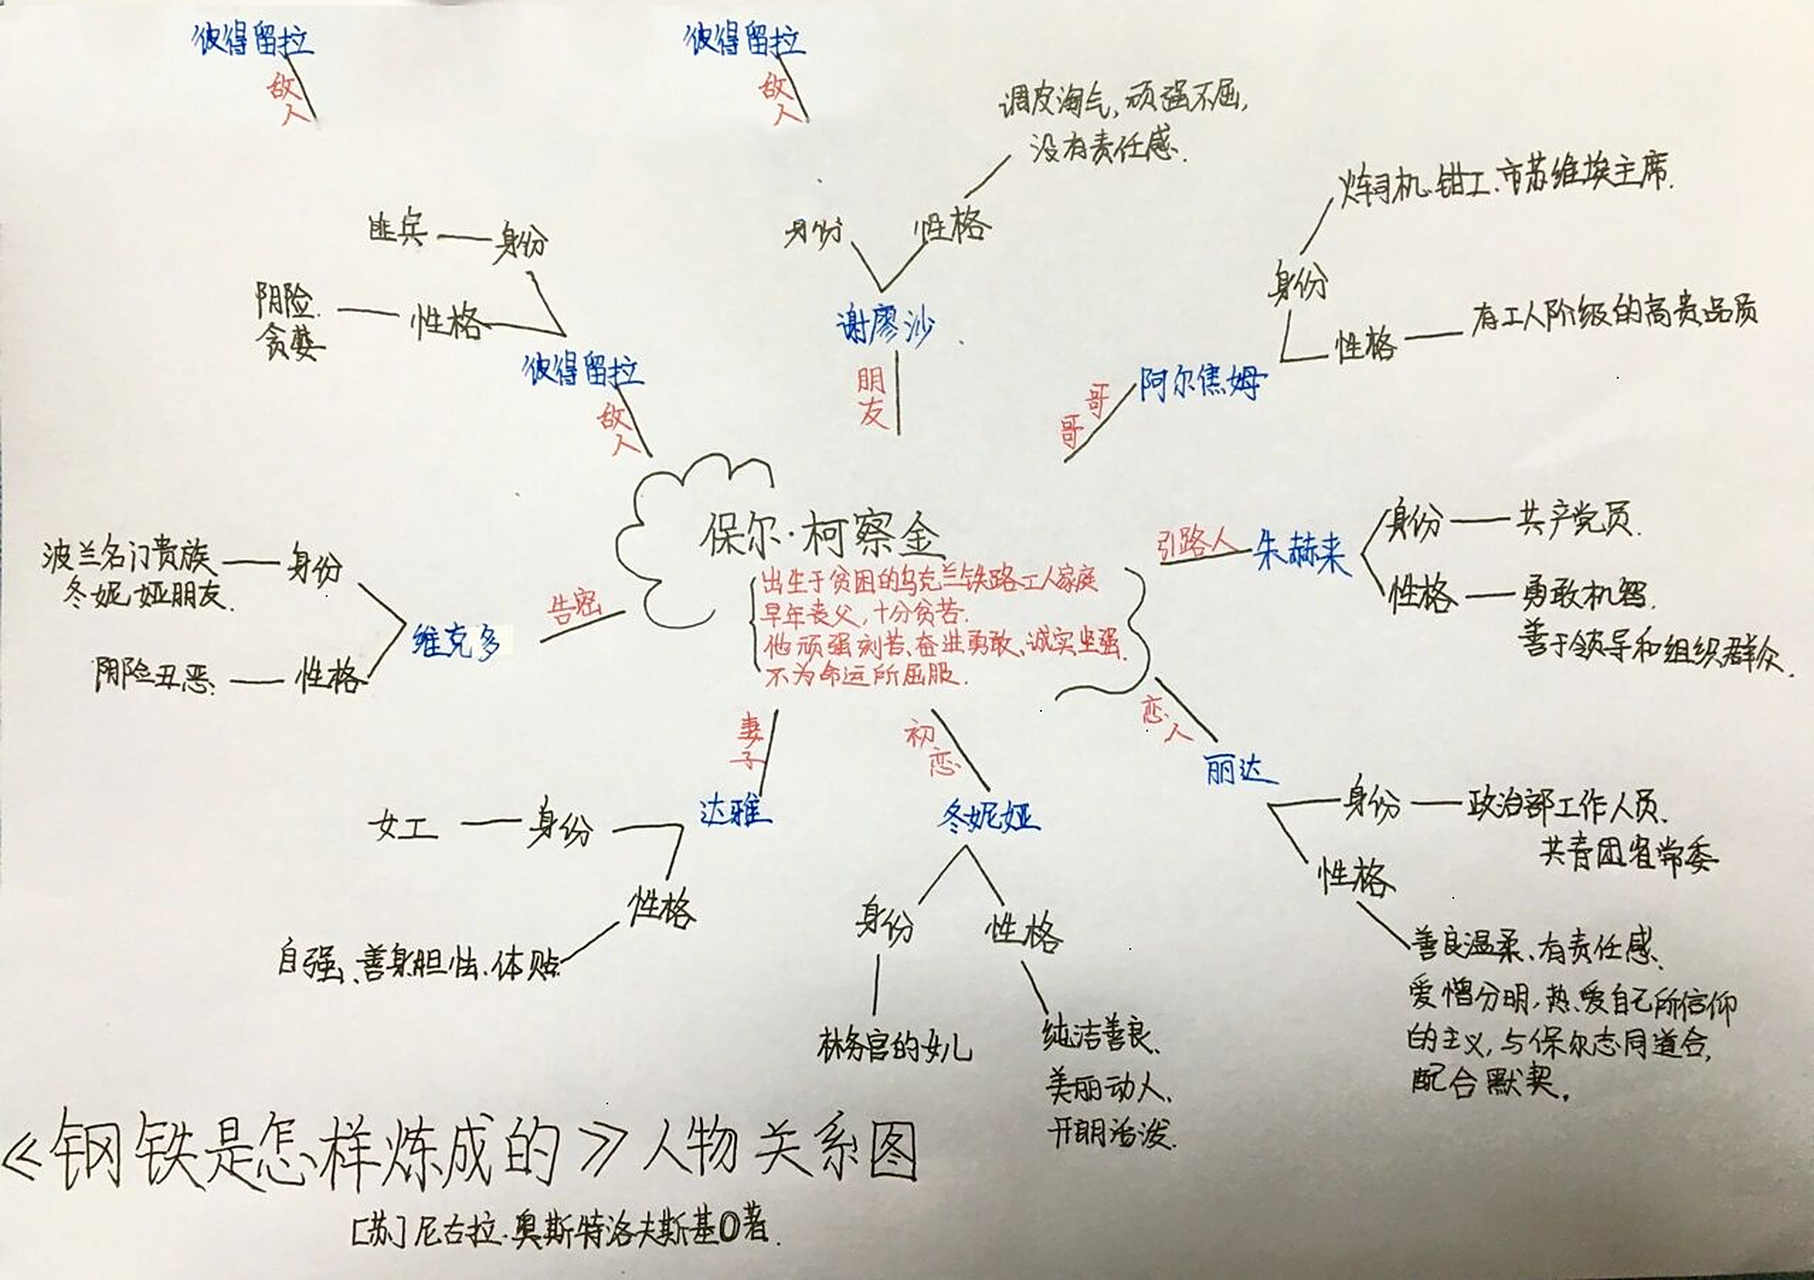 彼得留拉
敌人
彼得留拉
敌人
调皮淘气,顽强不屈,
没有责任感.
身份
性格
谢廖沙
朋友
匪兵
身份
阴险.
贪婪
性格
彼得留拉
敌人
火车司机.钳工.市苏维埃主席.
身份
性格
有工人阶级的高贵品质
阿尔焦姆
哥哥
保尔·柯察金
出生于贫困的乌克兰铁路工人家庭
早年丧父,十分贫苦.
他顽强刻苦、奋进勇敢、诚实坚强.
不为命运所屈服.
引路人
朱赫来
身份
共产党员.
性格
勇敢机智.
善于领导和组织群众.
波兰名门贵族
冬妮娅朋友.
身份
维克多
告密
阴险丑恶.
性格
妻子
达雅
女工
身份
性格
自强、善良胆怯、体贴
初恋
冬妮娅
身份
性格
林务官的女儿
纯洁善良、
美丽动人、
开朗活泼.
恋人
丽达
身份
政治部工作人员.
共青团省常委
性格
善良温柔、有责任感、
爱憎分明,热爱自己所信仰
的主义,与保尔志同道合,
配合默契。
《钢铁是怎样炼成的》人物关系图
[苏]尼古拉.奥斯特洛夫斯基 著.